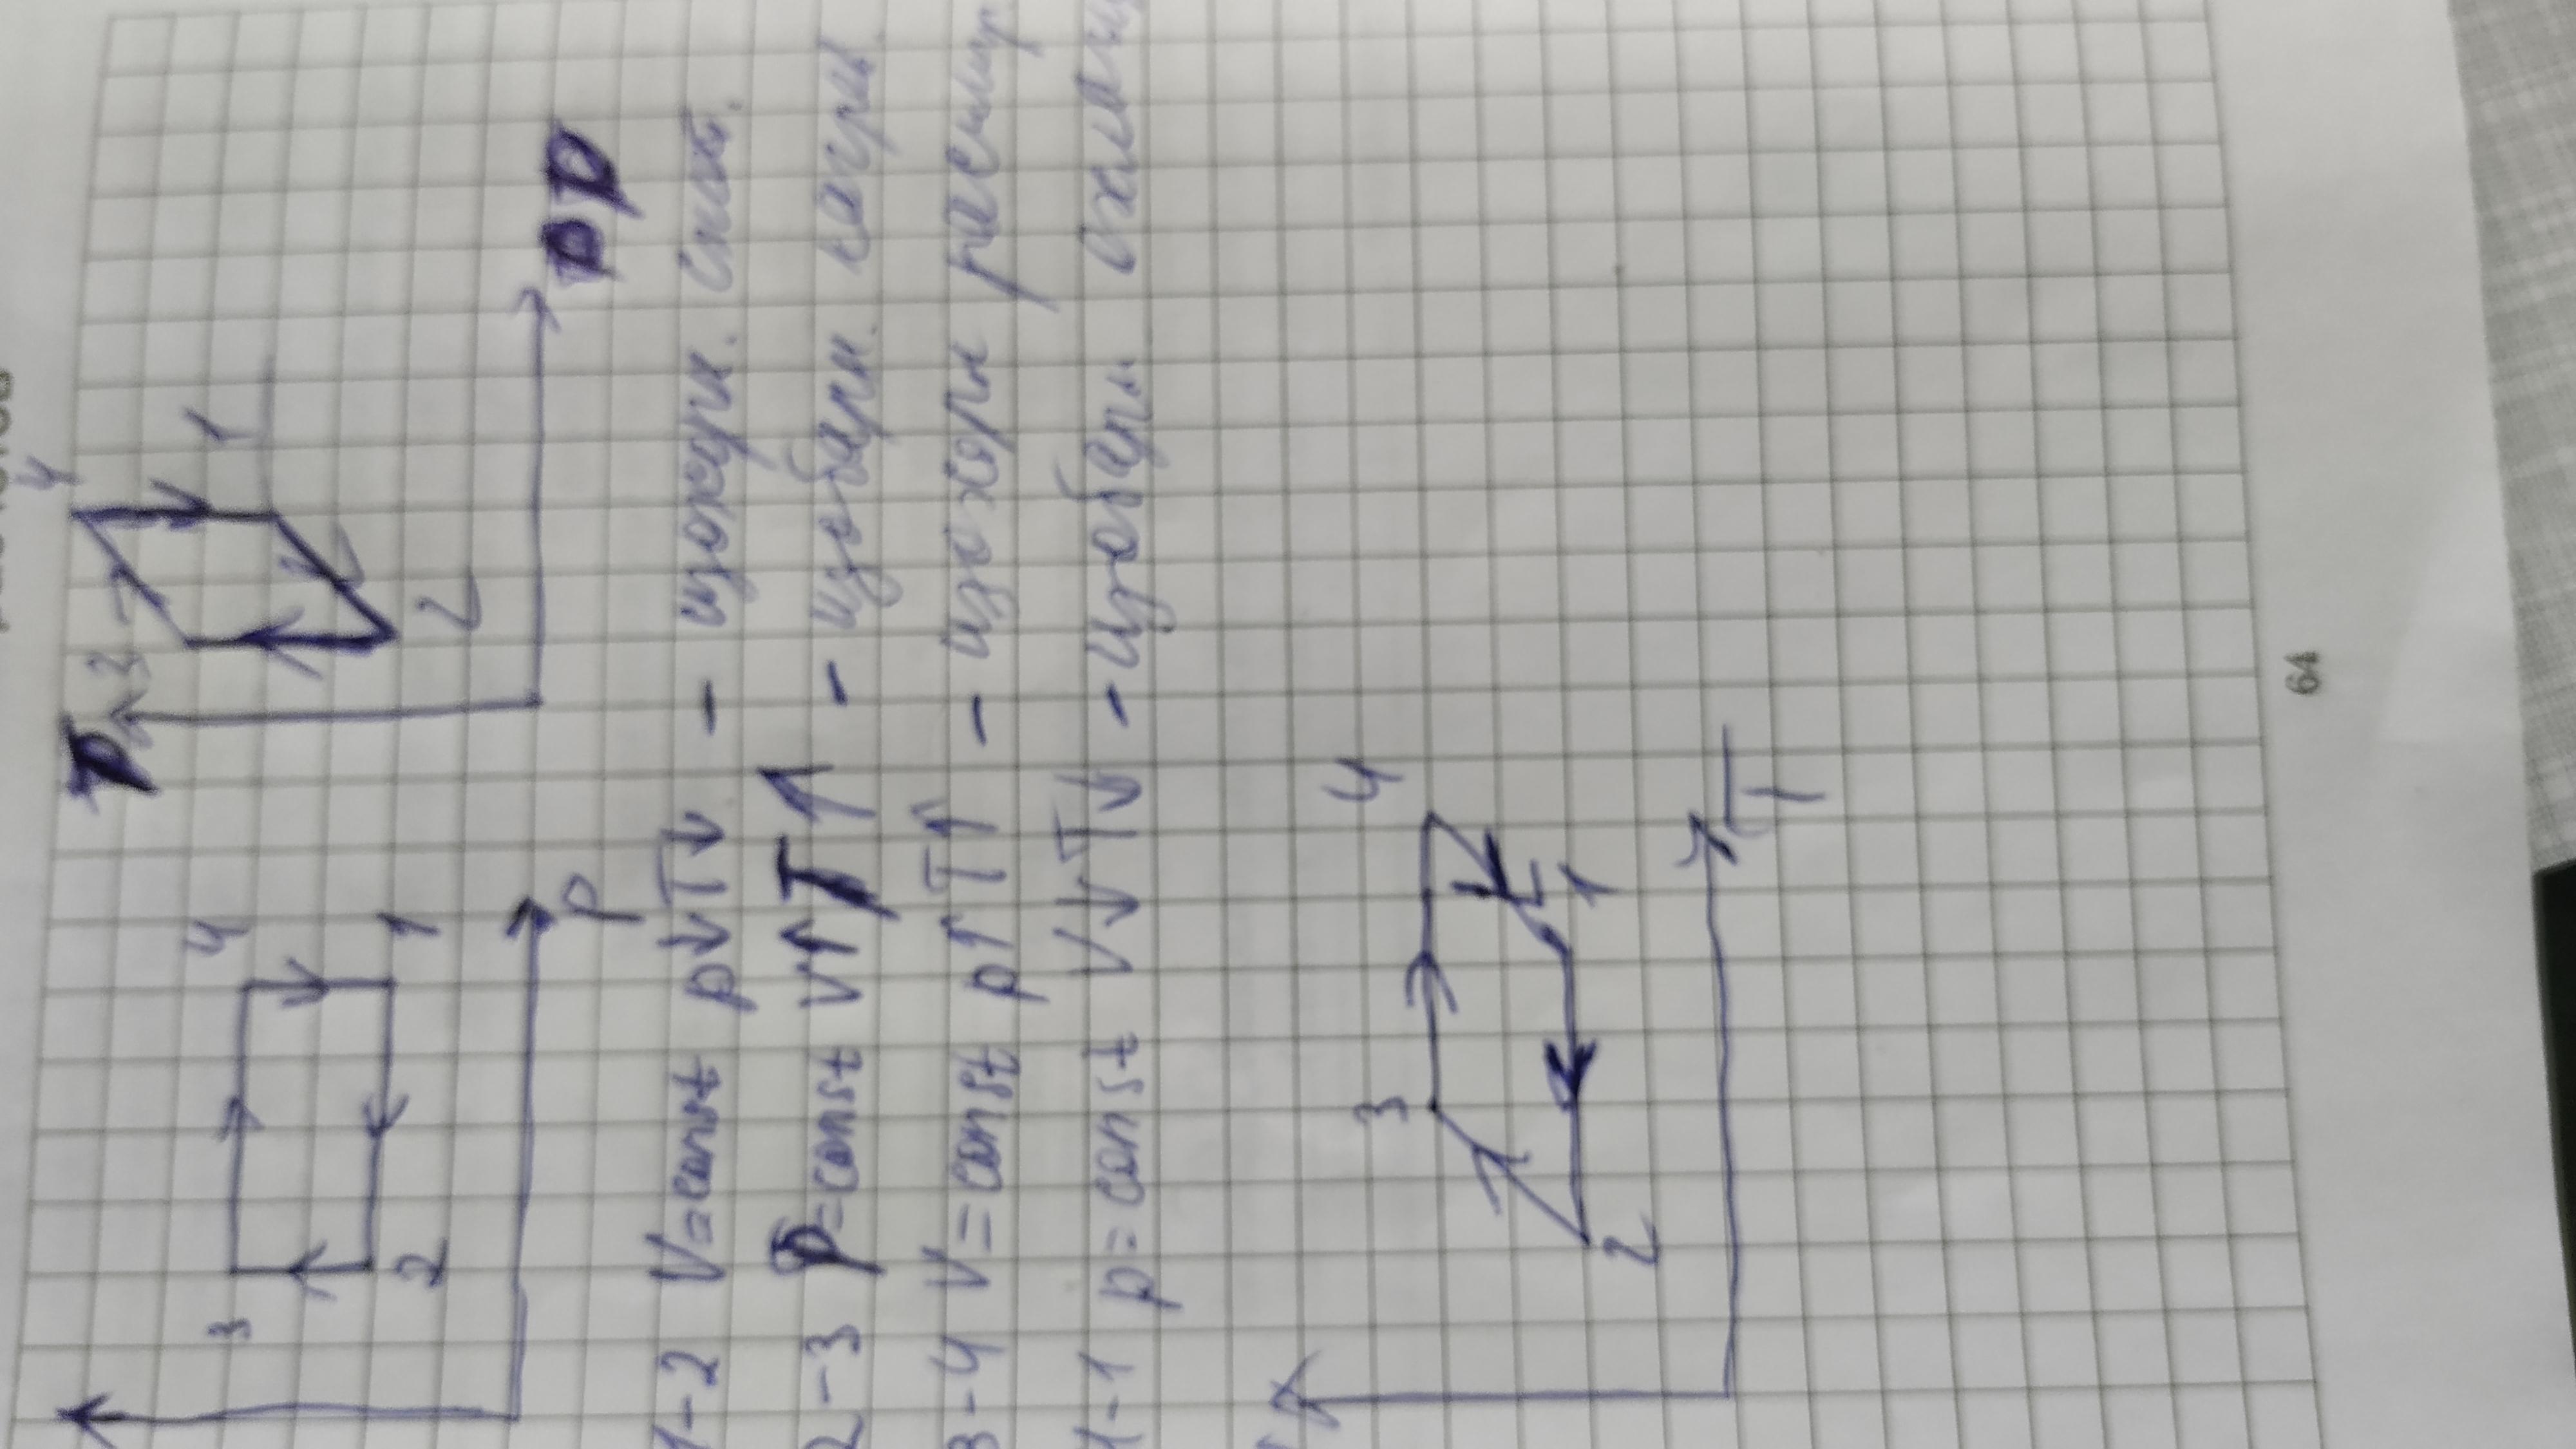 4
3
4
1
2
P
T
3
4
1
2
P
1-2 V=const p↓T↓ - изохорн. сжат.
2-3 p=const V↑T↑ - изобарн. нагрев.
3-4 V=const p↑T↑ - изохорн расшир
4-1 p=const V↓T↓ - изобарн охлажд
3
4
1
2
T
64